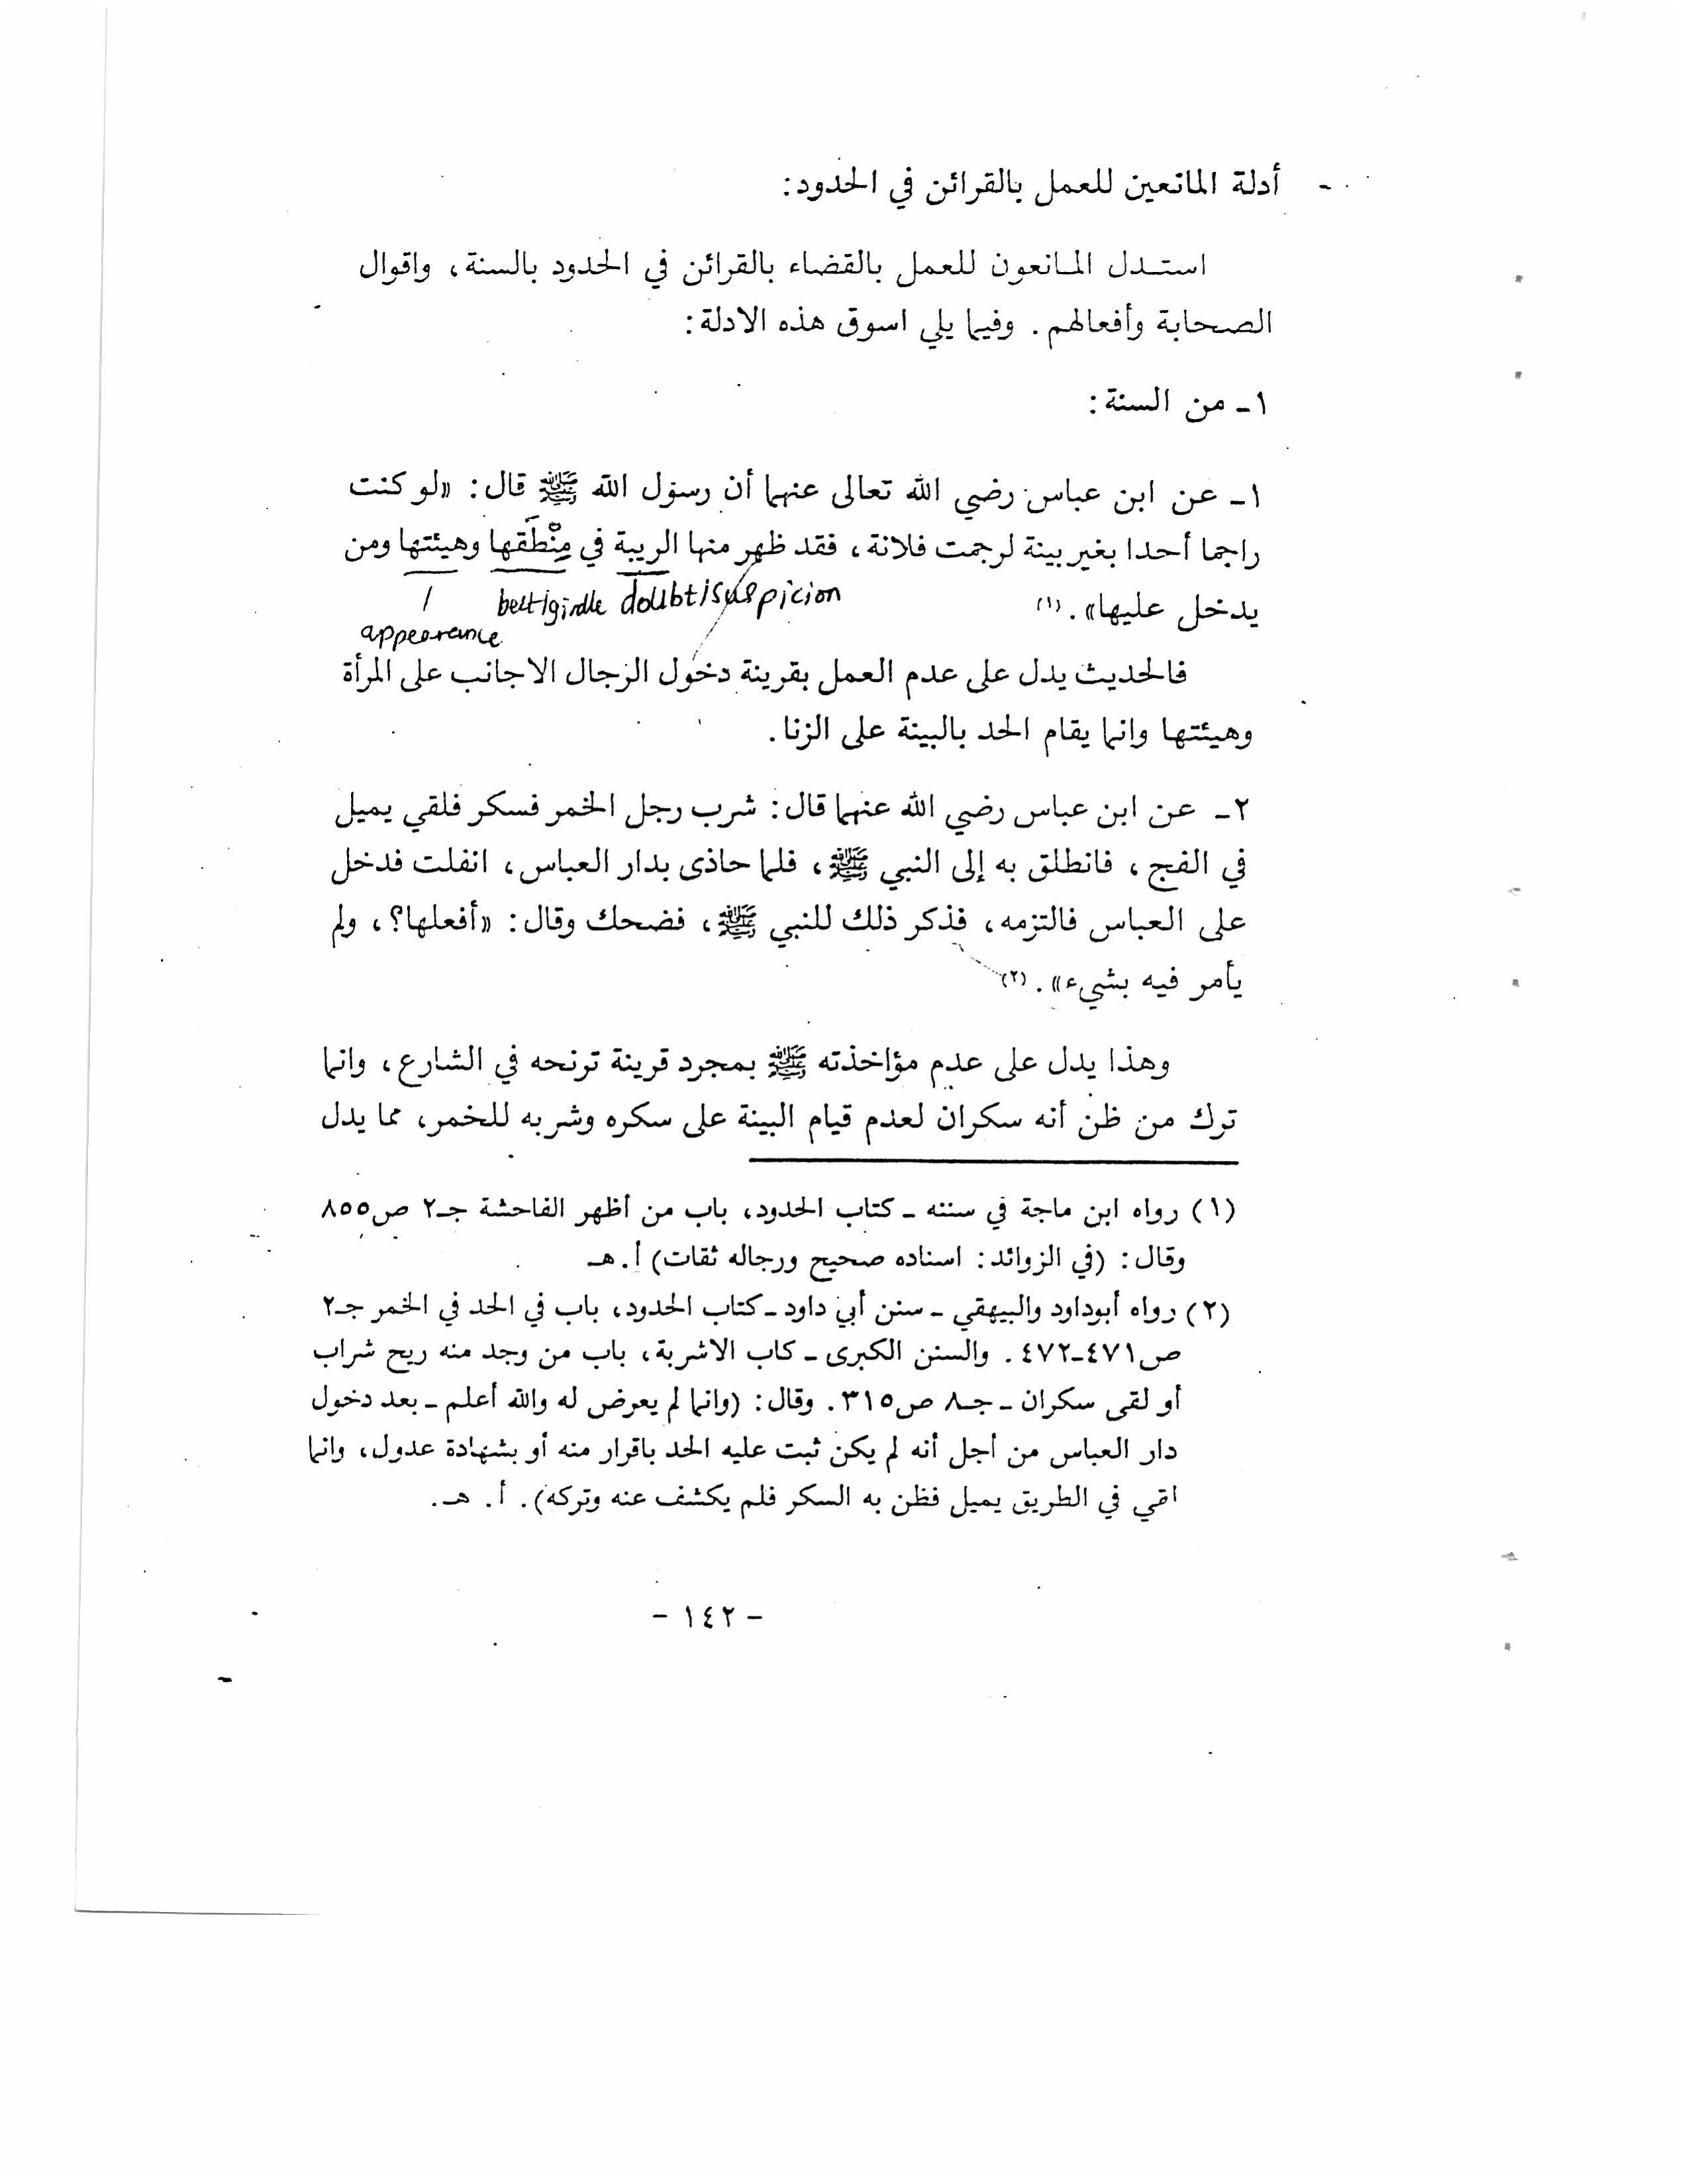 أدلة المانعين للعمل بالقرائن في الحدود:
استدل المانعون للعمل بالقضاء بالقرائن في الحدود بالسنة، واقوال
الصحابة وأفعالهم. وفيما يلي اسوق هذه الادلة:
١ـ من السنة:
١ـ عن ابن عباس رضي الله تعالى عنهما أن رسول الله ﷺ قال: «لو كنت
راجما أحدا بغير بينة لرجمت فلانة، فقد ظهر منها الريبة في مِنْطَقها وهيئتها ومن
belt/girdle doubt/suspicion
يدخل عليها». (١)
appearance
فالحديث يدل على عدم العمل بقرينة دخول الرجال الاجانب على المرأة
وهيئتها وانما يقام الحد بالبينة على الزنا.
٢ـ عن ابن عباس رضي الله عنهما قال: شرب رجل الخمر فسكر فلقي يميل
في الفج، فانطلق به إلى النبي ﷺ، فلما حاذى بدار العباس، انفلت فدخل
على العباس فالتزمه، فذكر ذلك للنبي ﷺ، فضحك وقال: «أفعلها؟، ولم
يأمر فيه بشيء». (٢)
وهذا يدل على عدم مؤاخذته ﷺ بمجرد قرينة ترنحه في الشارع، وانما
ترك من ظن أنه سكران لعدم قيام البينة على سكره وشربه للخمر، مما يدل
(١) رواه ابن ماجة في سننه ـ كتاب الحدود، باب من أظهر الفاحشة جـ٢ ص٨٥٥
وقال: (في الزوائد: اسناده صحيح ورجاله ثقات) أ. هـ
(٢) رواه أبوداود والبيهقي ـ سنن أبي داود ـ كتاب الحدود، باب في الحد في الخمر جـ٢
ص٤٧١ـ٤٧٢. والسنن الكبرى ـ كاب الاشربة، باب من وجد منه ريح شراب
أو لقى سكران ـ جـ٨ ص٣١٥. وقال: (وانما لم يعرض له والله أعلم ـ بعد دخول
دار العباس من أجل أنه لم يكن ثبت عليه الحد باقرار منه أو بشهادة عدول، وانما
لقي في الطريق يميل فظن به السكر فلم يكشف عنه وتركه). أ. هـ.
- ١٤٢ -